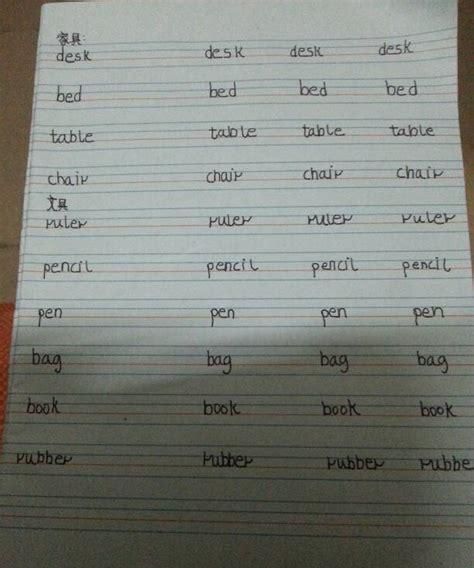 家具:
desk desk desk desk
bed bed bed bed
table table table table
chair chair chair chair
文具
ruler ruler ruler ruler
pencil pencil pencil pencil
pen pen pen pen
bag bag bag bag
book book book book
rubber rubber rubber rubbe